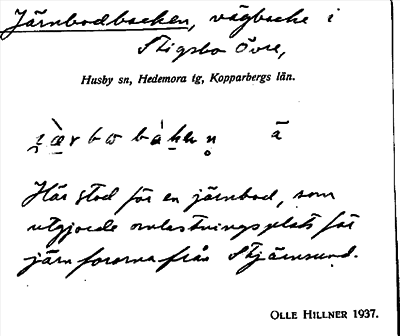 Järnbodbacken, vägbacke i
Stigsbo Övre,
Husby sn, Hedemora tg, Kopparbergs län.
ā
Här stod för en järnbod, som
utgjorde omlastningsplats för
järnfororna från Stjärnsund.
OLLE HILLNER 1937.